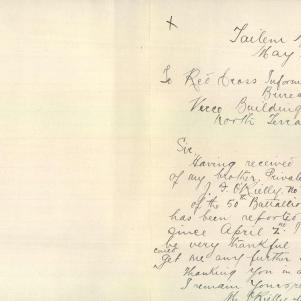 x
Tailem
May
To Red Cross Inform
Bureau
Verco Building
North Terra
Sir,
Having received
of my brother, Private
J. F. O'Rielly, no
of the 50th Battalio
has been reported
since April 2nd
be very thankful
could
get me any further
Thanking you in a
I remain Yours